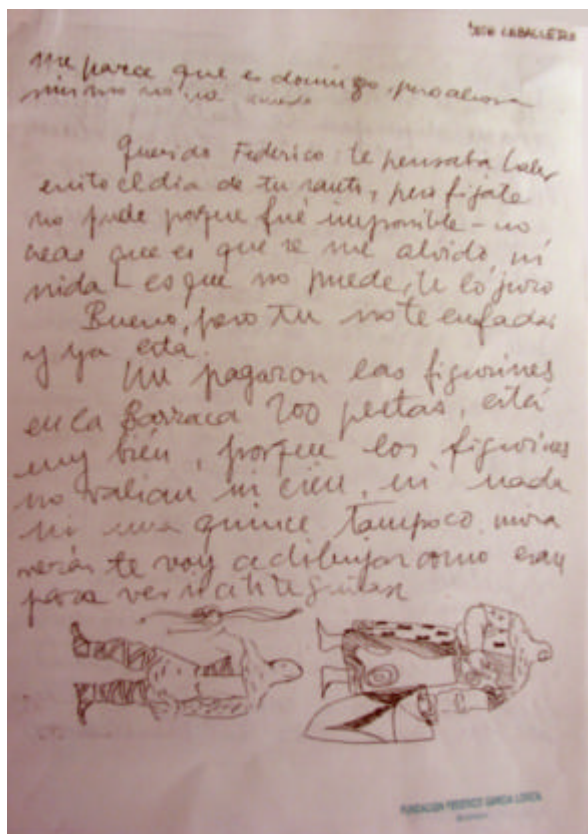 JOSE CABALLERO
me parece que es domingo, pero ahora
mismo no
Querido Federico: te pensaba haber
escrito el dia de tu santo, pero fijate
no pude porque fué imposible - no
creas que es que se me olvidó, ni
nida - es que no puede, te lo juro
Bueno, pero tu no te enfadas
y ya está.
Me pagaron las figurines
en la Barraca 200 pesetas, está
muy bién, porque los figurines
no valian ni cien, ni nada
ni una quince tampoco. mira
verás te voy a dibujar como eran
para ver si te gustan
FUNDACION FEDERICO GARCIA LORCA